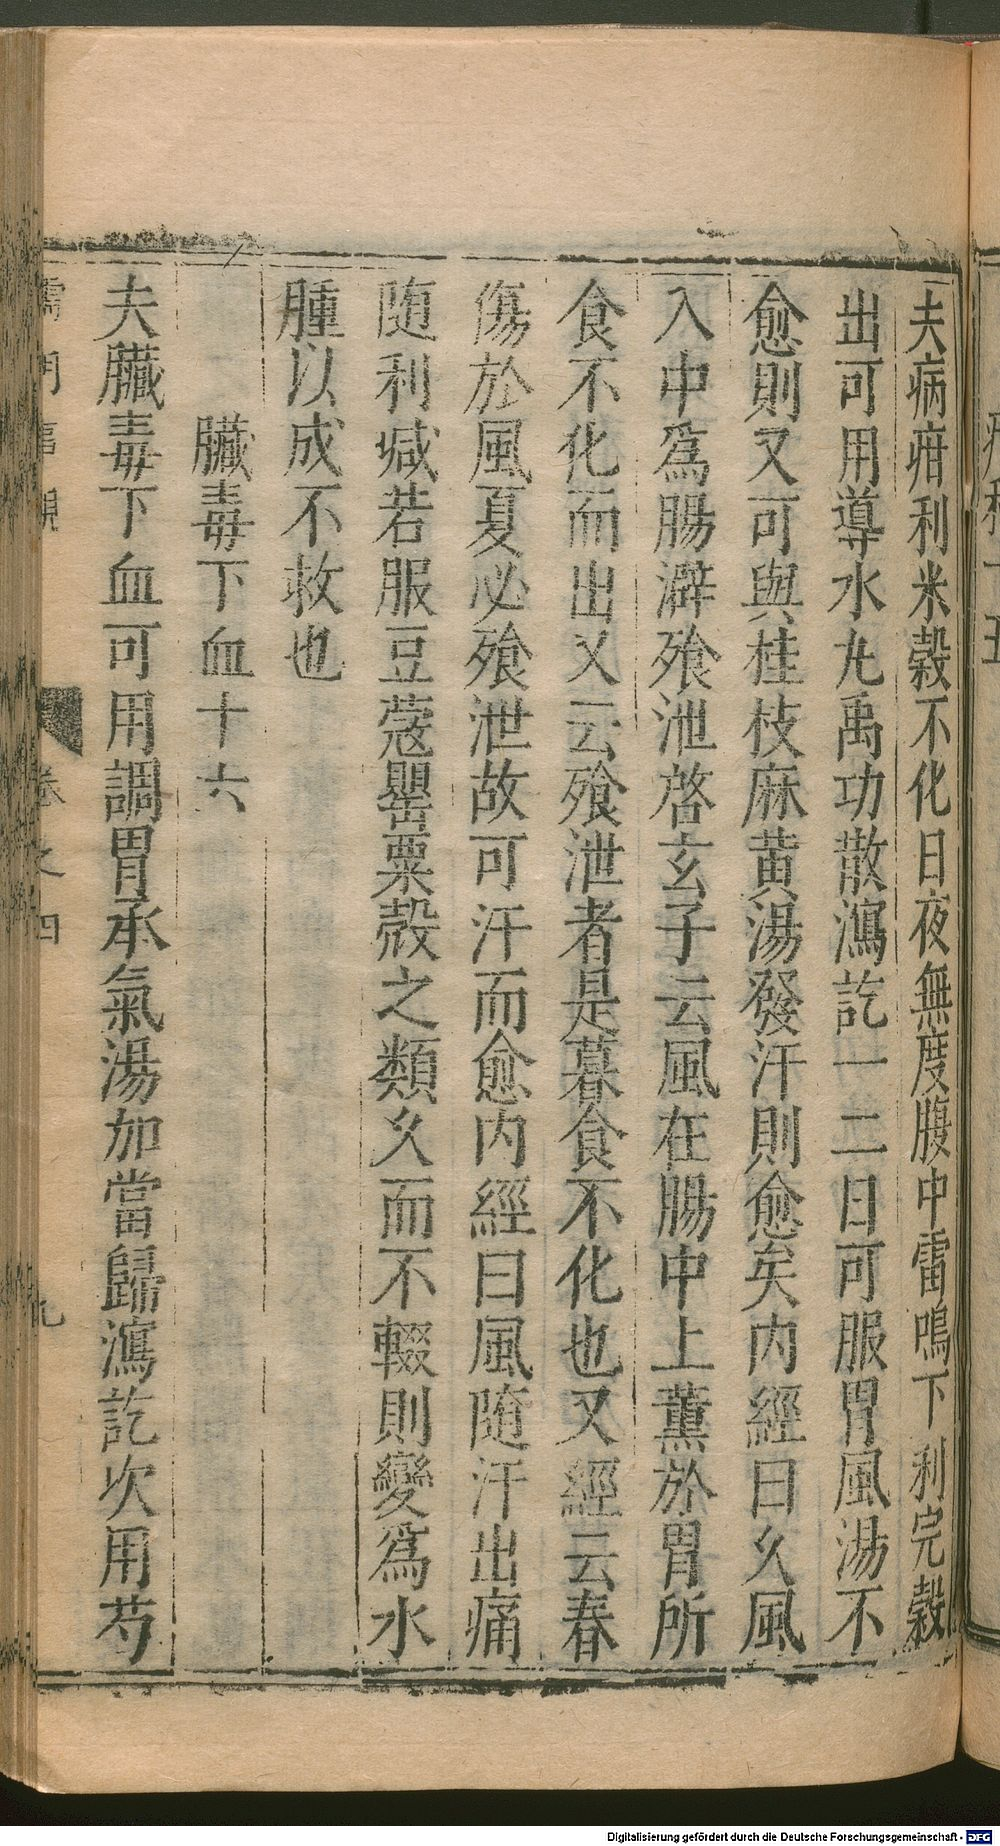 夫病疳利米穀不化日夜無度腹中雷鳴下利完穀
出可用導水丸禹功散瀉訖一二日可服胃風湯不
愈則又可與桂枝麻黄湯發汗則愈矣内經曰久風
入中爲腸澼飱泄啓玄子云風在腸中上薰於胃所
食不化而出又云飱泄者是暮食不化也又經云春
傷於風夏必飱泄故可汗而愈内經曰風隨汗出痛
隨利减若服豆蔻罌粟殻之類久而不輟則變爲水
腫以成不救也
臟毒下血十六
夫臟毒下血可用調胃承氣湯加當歸瀉訖次用芍
卷之四
九
Digitalisierung gefördert durch die Deutsche Forschungsgemeinschaft - DFG